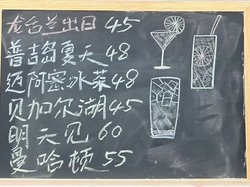 龙舌兰出日 45
普吉岛夏天 48
迈阿密冰茶 48
贝加尔湖 45
明天见 60
曼哈顿 55